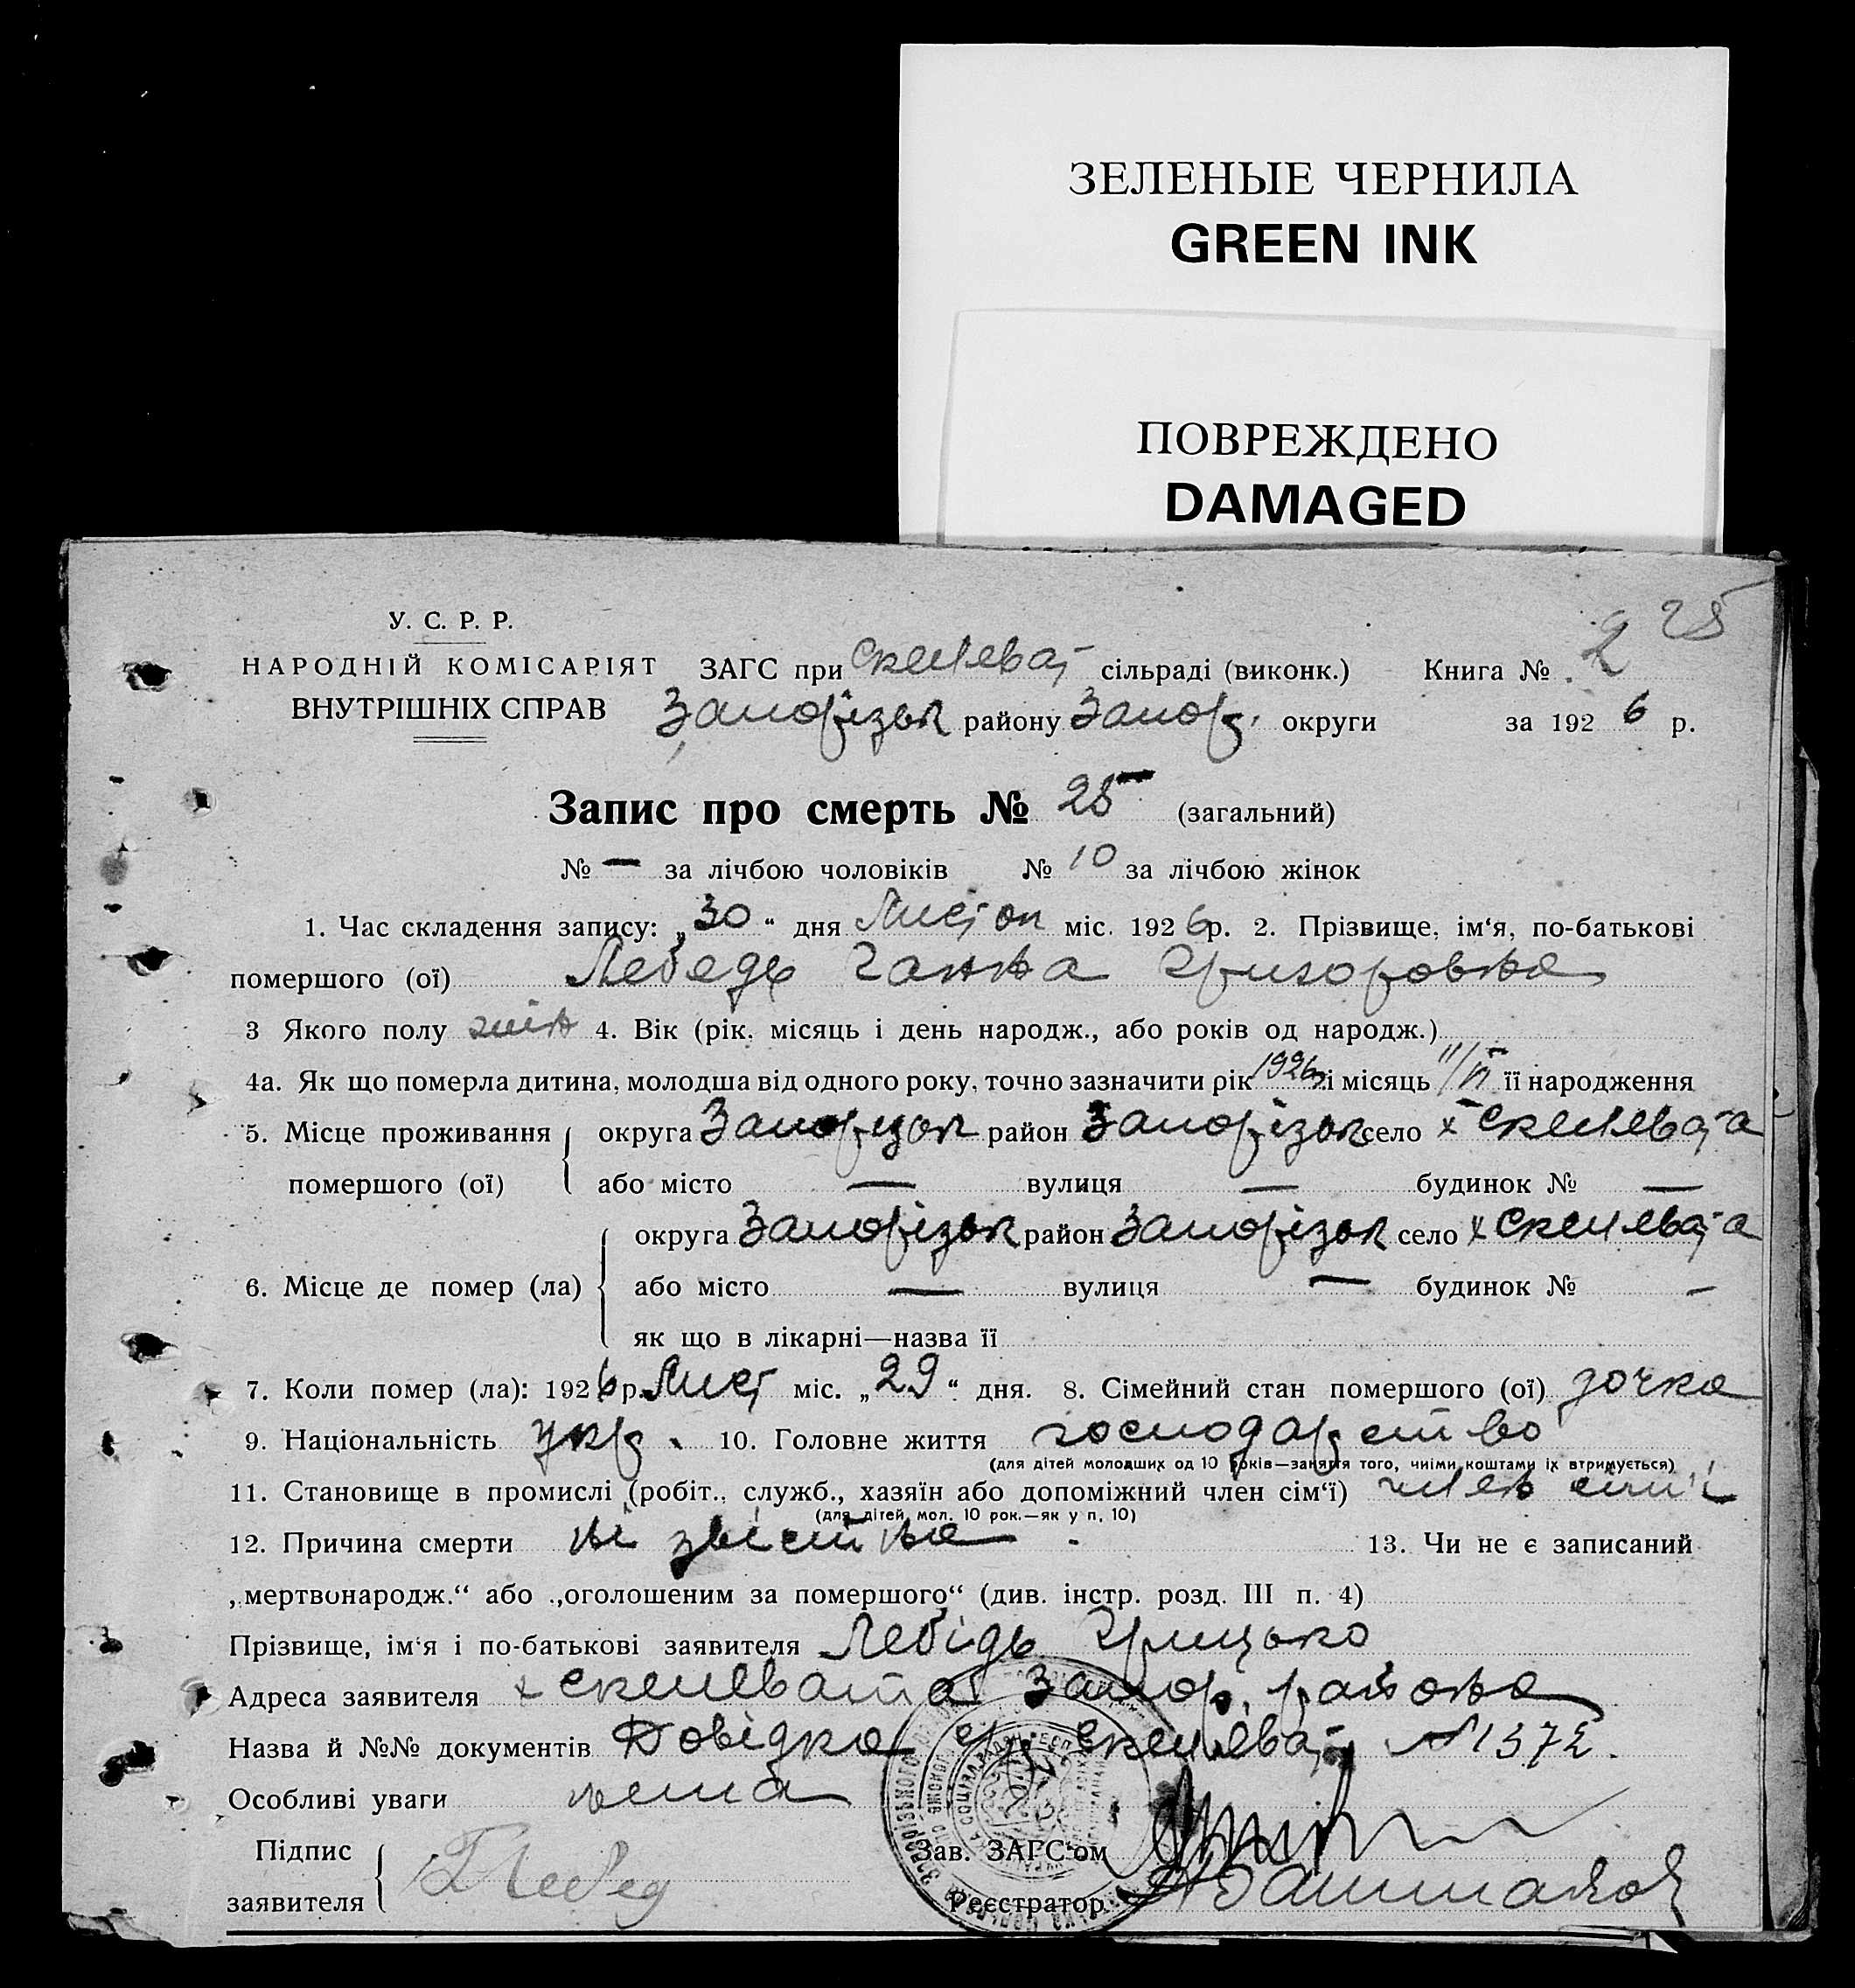 ЗЕЛЕНЫЕ ЧЕРНИЛА
GREEN INK
ПОВРЕЖДЕНО
DAMAGED
25
У. С. Р. Р.
НАРОДНІЙ КОМІСАРІЯТ ЗАГС при Скелеват сільраді (виконк.) Книга № 2
ВНУТРІШНІХ СПРАВ Запорізьк району Запор. округи за 1926 р.
Запис про смерть № 25 (загальний)
№ — за лічбою чоловіків № 10 за лічбою жінок
1. Час складення запису: „30“ дня Листоп міс. 1926р. 2. Прізвище, ім‘я, по-батькові
помершого (ої) Лебедь Ганна Григоровна
3 Якого полу жін 4. Вік (рік, місяць і день народж., або років од народж.)
4а. Як що померла дитина, молодша від одного року, точно зазначити рік 1926 і місяць 11/VI її народження
5. Місце проживання округа Запорізьк район Запорізьк село х Скелевата
помершого (ої) або місто — вулиця — будинок № —
округа Запорізьк район Запорізьк село х Скелевата
6. Місце де помер (ла) або місто — вулиця — будинок № —
як що в лікарні—назва її
7. Коли помер (ла): 1926 р. Лист міс. „29“ дня. 8. Сімейний стан помершого (ої) дочка
9. Національність укр. 10. Головне життя господарство
(для дітей молодших од 10 років—заняття того, чиїми коштами їх втримується)
11. Становище в промислі (робіт., служб., хазяїн або допоміжний член сім‘ї) член сим'ї
(для дітей мол. 10 рок.—як у п. 10)
12. Причина смерти ні звістна 13. Чи не є записаний
„мертвонародж.“ або „оголошеним за помершого“ (див. інстр. розд. III п. 4)
Прізвище, ім‘я і по-батькові заявителя Лебідь Грицько
Адреса заявителя х Скелевата Запор. района
Назва й №№ документів Довідка с/р Скелеват № 1372.
Особливі уваги нема
Підпис Зав. ЗАГС‘ом
заявителя Г Лебед Реєстратор